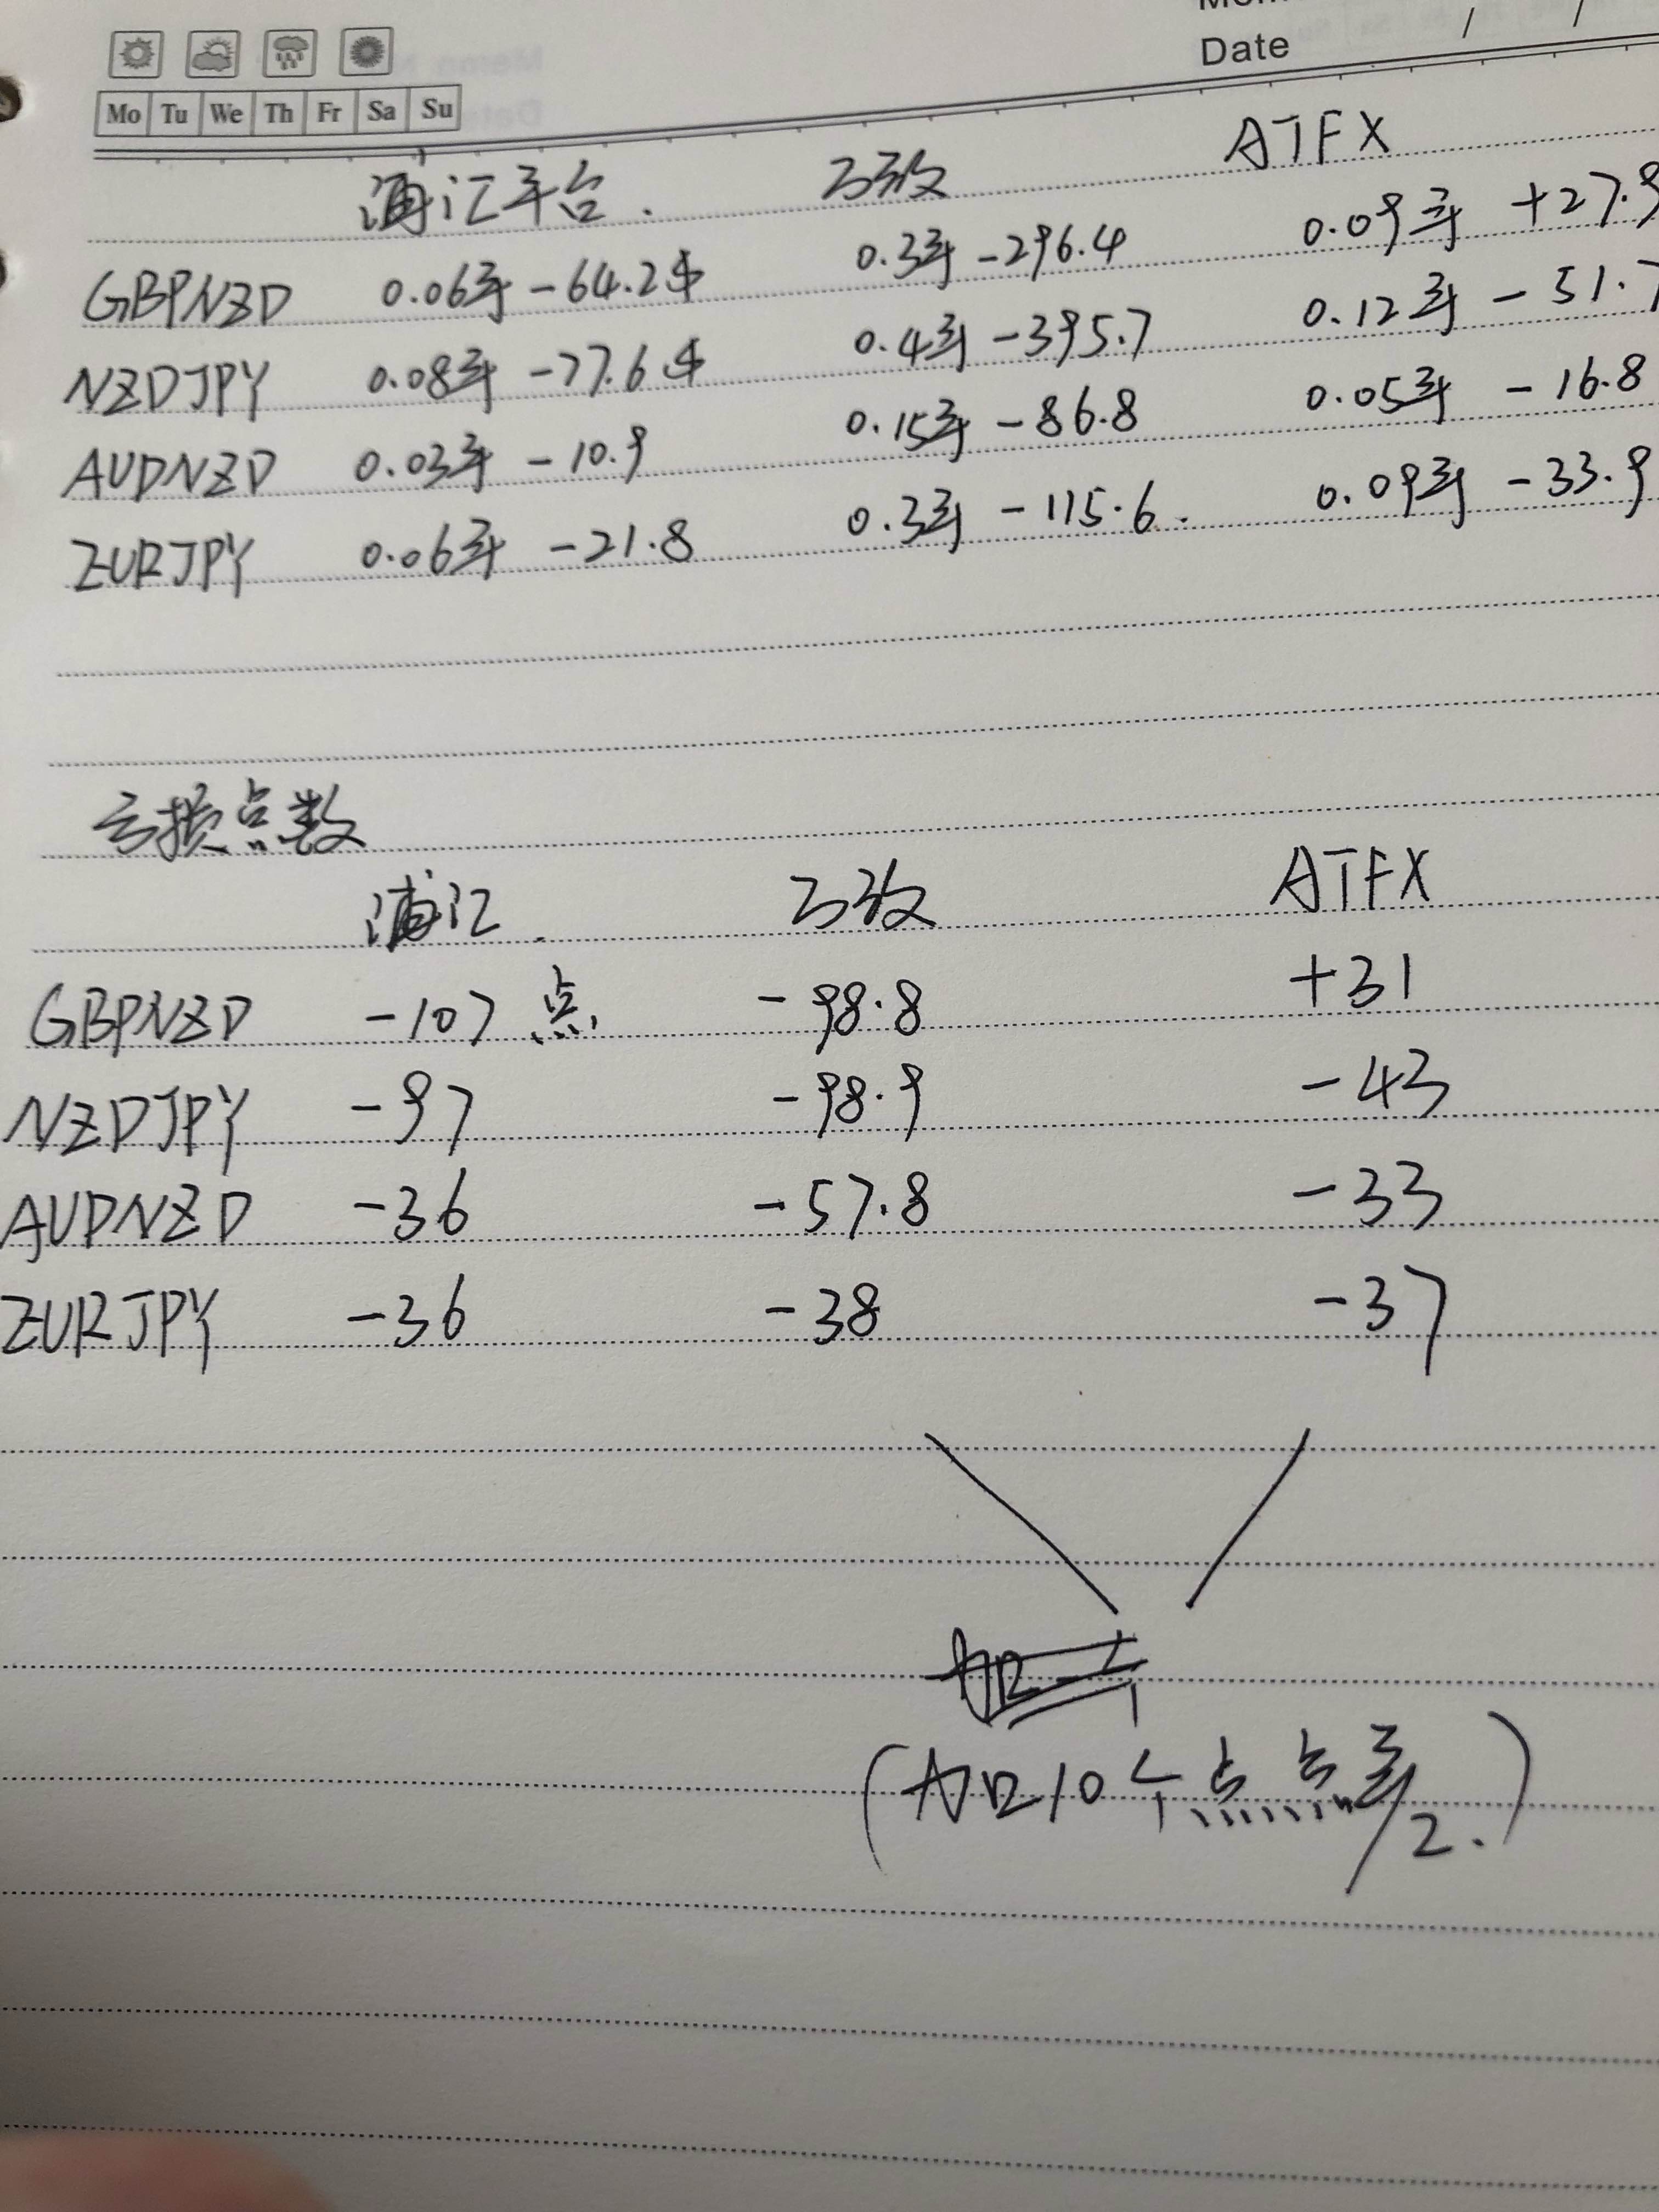 Date / /
Mo Tu We Th Fr Sa Su
浦汇平台. 万致 ATFX
GBPNZD 0.06手 -64.2 0.3手 -296.4 0.09手 +27.9
NZDJPY 0.08手 -77.6 0.4手 -395.7 0.12手 -51.7
AUDNZD 0.03手 -10.9 0.15手 -86.8 0.05手 -16.8
ZURJPY 0.06手 -21.8 0.3手 -115.6. 0.09手 -33.9
亏损点数
浦汇. 万致 ATFX
GBPNZD -107点 -98.8 +31
NZDJPY -97 -98.9 -43
AUDNZD -36 -57.8 -33
ZURJPY -36 -38 -37
(加10个点点 /2.)